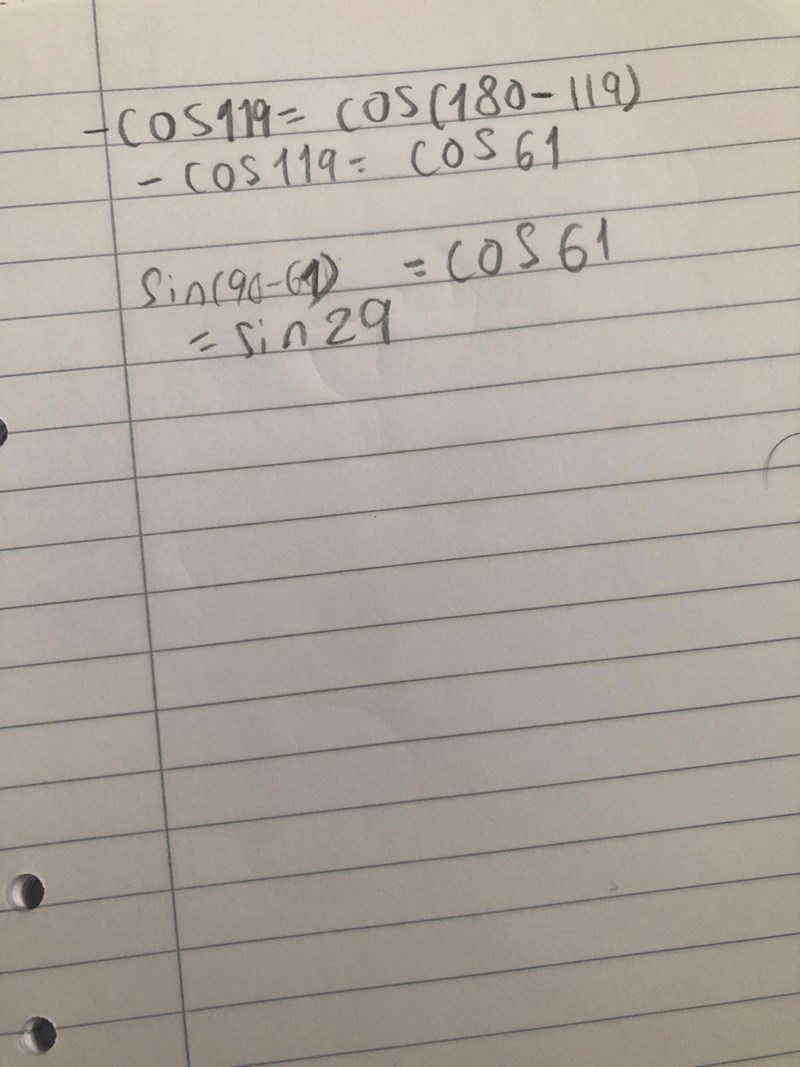 -COS119= COS(180-119)
- COS119= COS 61
Sin(90-61) = COS 61
= Sin 29